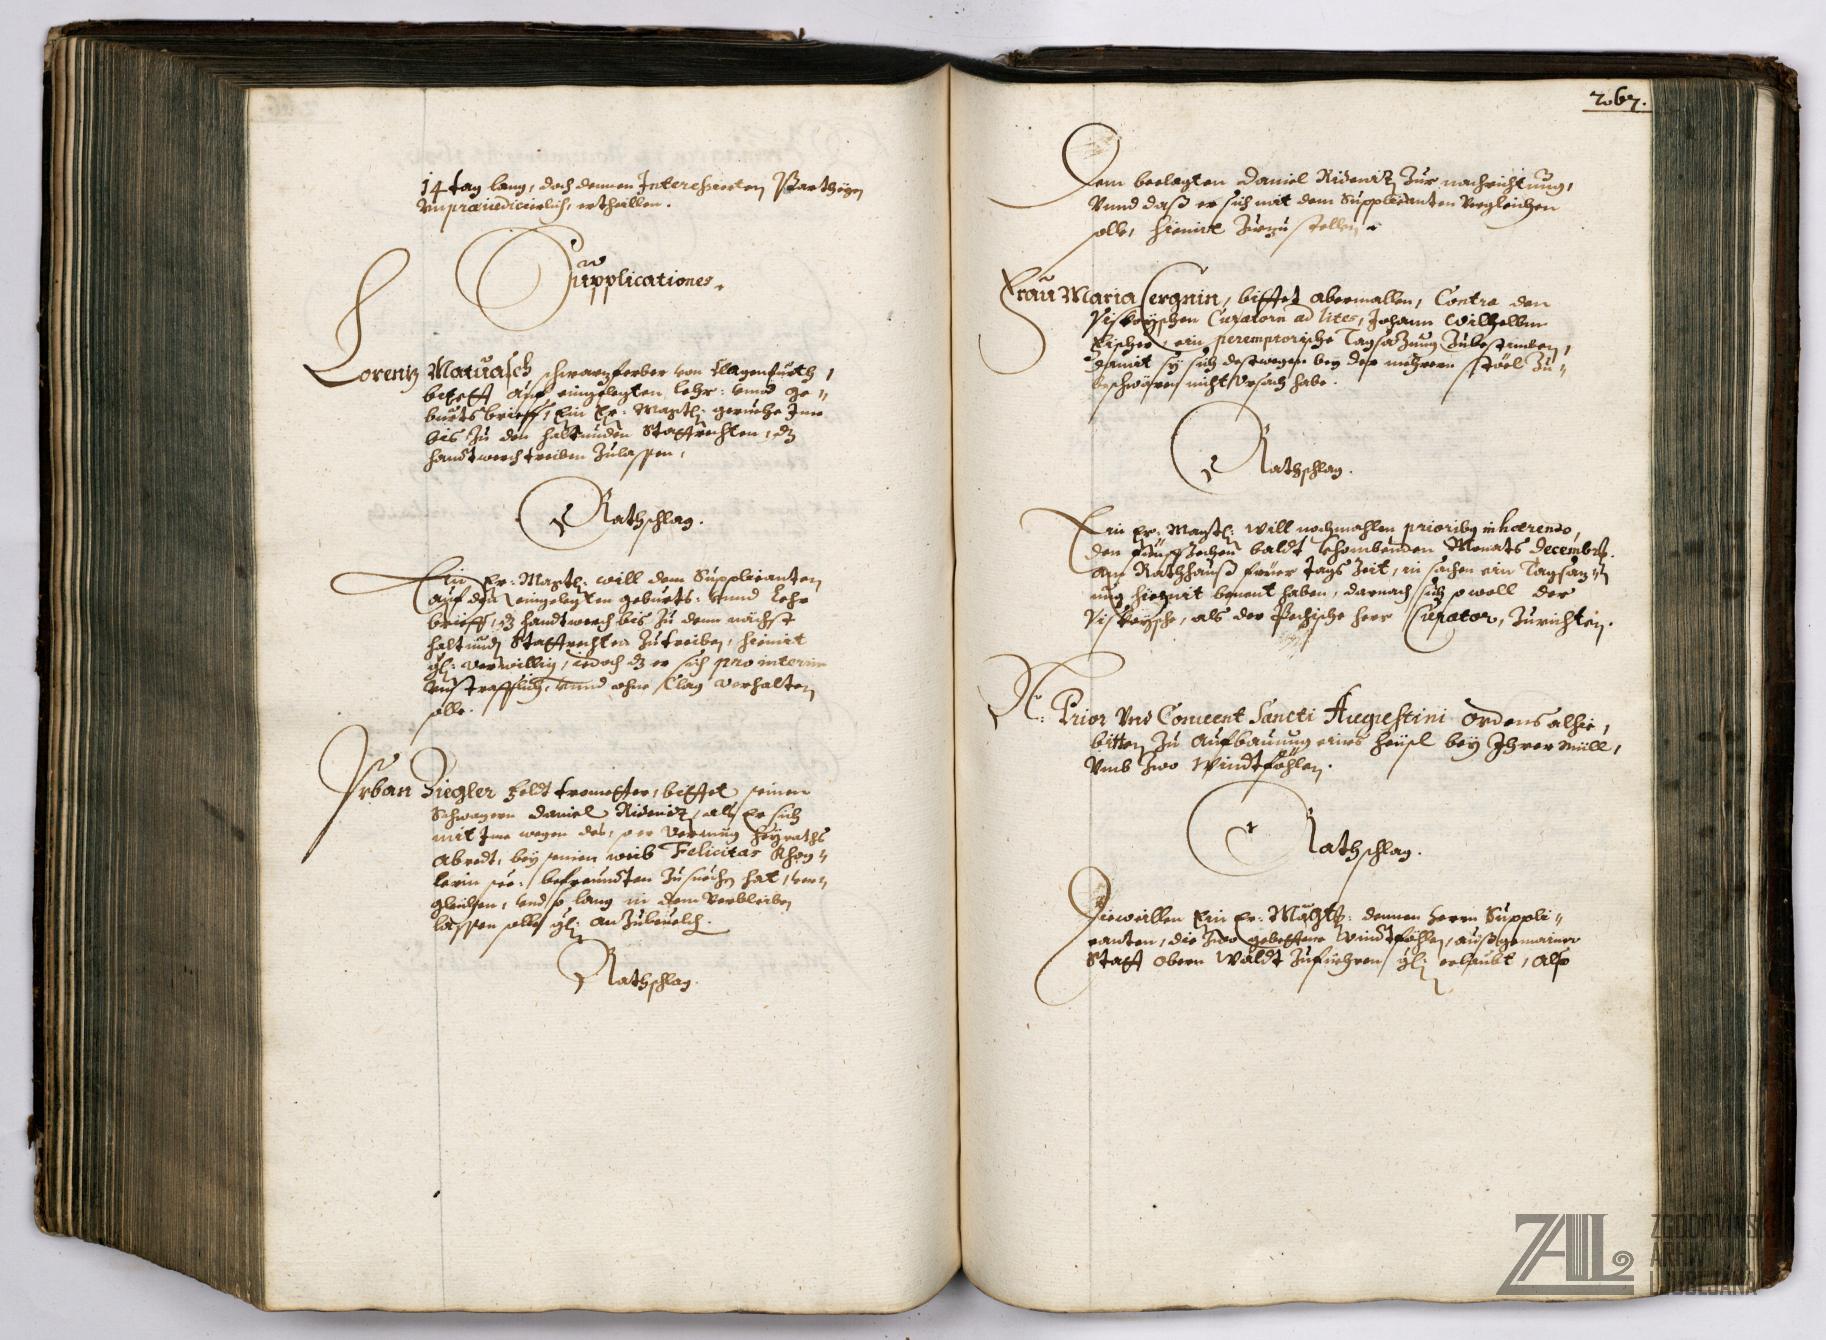 14 tag lang, doch denen Interessierten Partheyen
vnpraeiudicierlich, ertheillen.
Supplicationes.
Lorentz Matuasch schwarzferber von Clagenfurth,
bitett auf eingelegten lehr: vnd ge-
burtsbrieff, Ein Er: Magtl: geruehe Ime
bis zu den haltunden Stattrechten, dz
handtwerch treiben zulassen,
Rathschlag.
Ein Er: Magtl: will dem Supplicanten
auf den eingelegten geburts: vnnd Lehr
brieff, dz handtwerch bis zu denn nächst
haltund Stattrechten zutreiben, hiemit
gl: verwillig, iedoch dz er sich pro interim
vnstrafflich, vnnd ohne Clag verhalten
solle.
Vrban Ziegler Feldttrometter, bittet seinen
Schwagern Daniel, als Er sich
mit Ime wegen des, so er vermüg heyraths
abredt, bey seinen weib Felicitas
see: befreundten zusuechen hat, ver-
gleichen, vnd so lang in dem Verbleiben
lassen solle gl: anzubeuelch.
Rathschlag.
267.
Dem beclagten Daniel zur nachrichtung,
Vnnd daß er sich mit dem Supplicanten Vergleichen
solle, hiemit zuezustellen.
Frau Maria Cergnin, bittet abermallen, Contra den
Curatorn ad lites, Johann Wilhelbm
Fischer, ein peremptorische Tagsazung zubestimben,
damit sy sich destwegen bey der mehrern stöel zu-
beschwären nicht vrsach habe.
Rathschlag.
Ein Er: Magtl: will nochmahlen prioribus inhaerendo,
den fünffzehen baldt khombenden Monats Decembris.
am Rathhauß früer tags Zeit, in sachen ein Tagsaz-
ung hiemit benent haben, darnach sich sowoll der
als der Pechische herr Curator, zurichten.
N: Prior Vnd Conuent Sancti Augustini Ordens alhie,
bitten zu Aufbauung eines heüsl bey Ihrer Müll,
Vmb zwo Windtföhlen.
Rathschlag.
Dieweillen Ein Er: Magtl: dennen herrn Suppli-
canten, die zwo gebettene Windtföhlen, auß gemainer
Statt obern Waldt zufüehren gl: erlaubt, Also
ZAL ZGODOVINSKI
ARHIV
LJUBLJANA